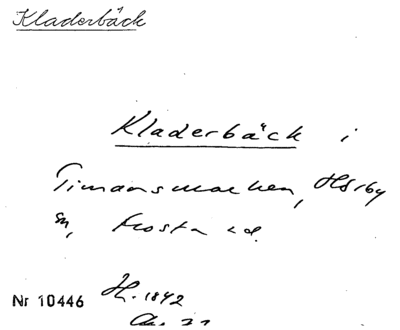 Kladerbäck
Kladerbäck i
Timansmarken, Hörby
sn, Frosta hd.
Nr 10446 H. 1842